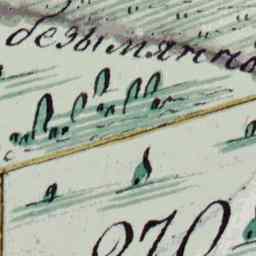 безымянно
270